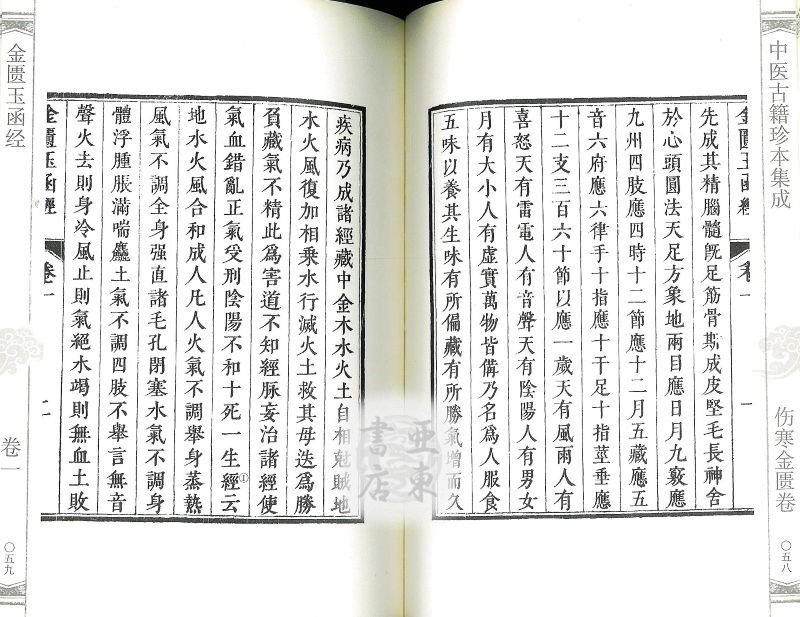 中医古籍珍本集成
伤寒金匮卷
〇五八
金匱玉函經 卷一 一
先成其精腦髓旣足筋骨斯成皮堅毛長神舍
於心頭圓法天足方象地兩目應日月九竅應
九州四肢應四時十二節應十二月五藏應五
音六府應六律手十指應十干足十指莖垂應
十二支三百六十節以應一歲天有風雨人有
喜怒天有雷電人有音聲天有陰陽人有男女
月有大小人有虛實萬物皆備乃名爲人服食
五味以養其生味有所偏藏有所勝氣增而久
亜東
書店
疾病乃成諸經藏中金木水火土自相尅賊地
水火風復加相乘水行滅火土救其母迭爲勝
負藏氣不精此爲害道不知經脉妄治諸經使
氣血錯亂正氣受刑陰陽不和十死一生經①云
地水火風合和成人凡人火氣不調舉身蒸熱
風氣不調全身强直諸毛孔閉塞水氣不調身
體浮腫脹滿喘麤土氣不調四肢不舉言無音
聲火去則身冷風止則氣絕水竭則無血土敗
金匱玉函經 卷一 二
金匮玉函经
卷一
〇五九